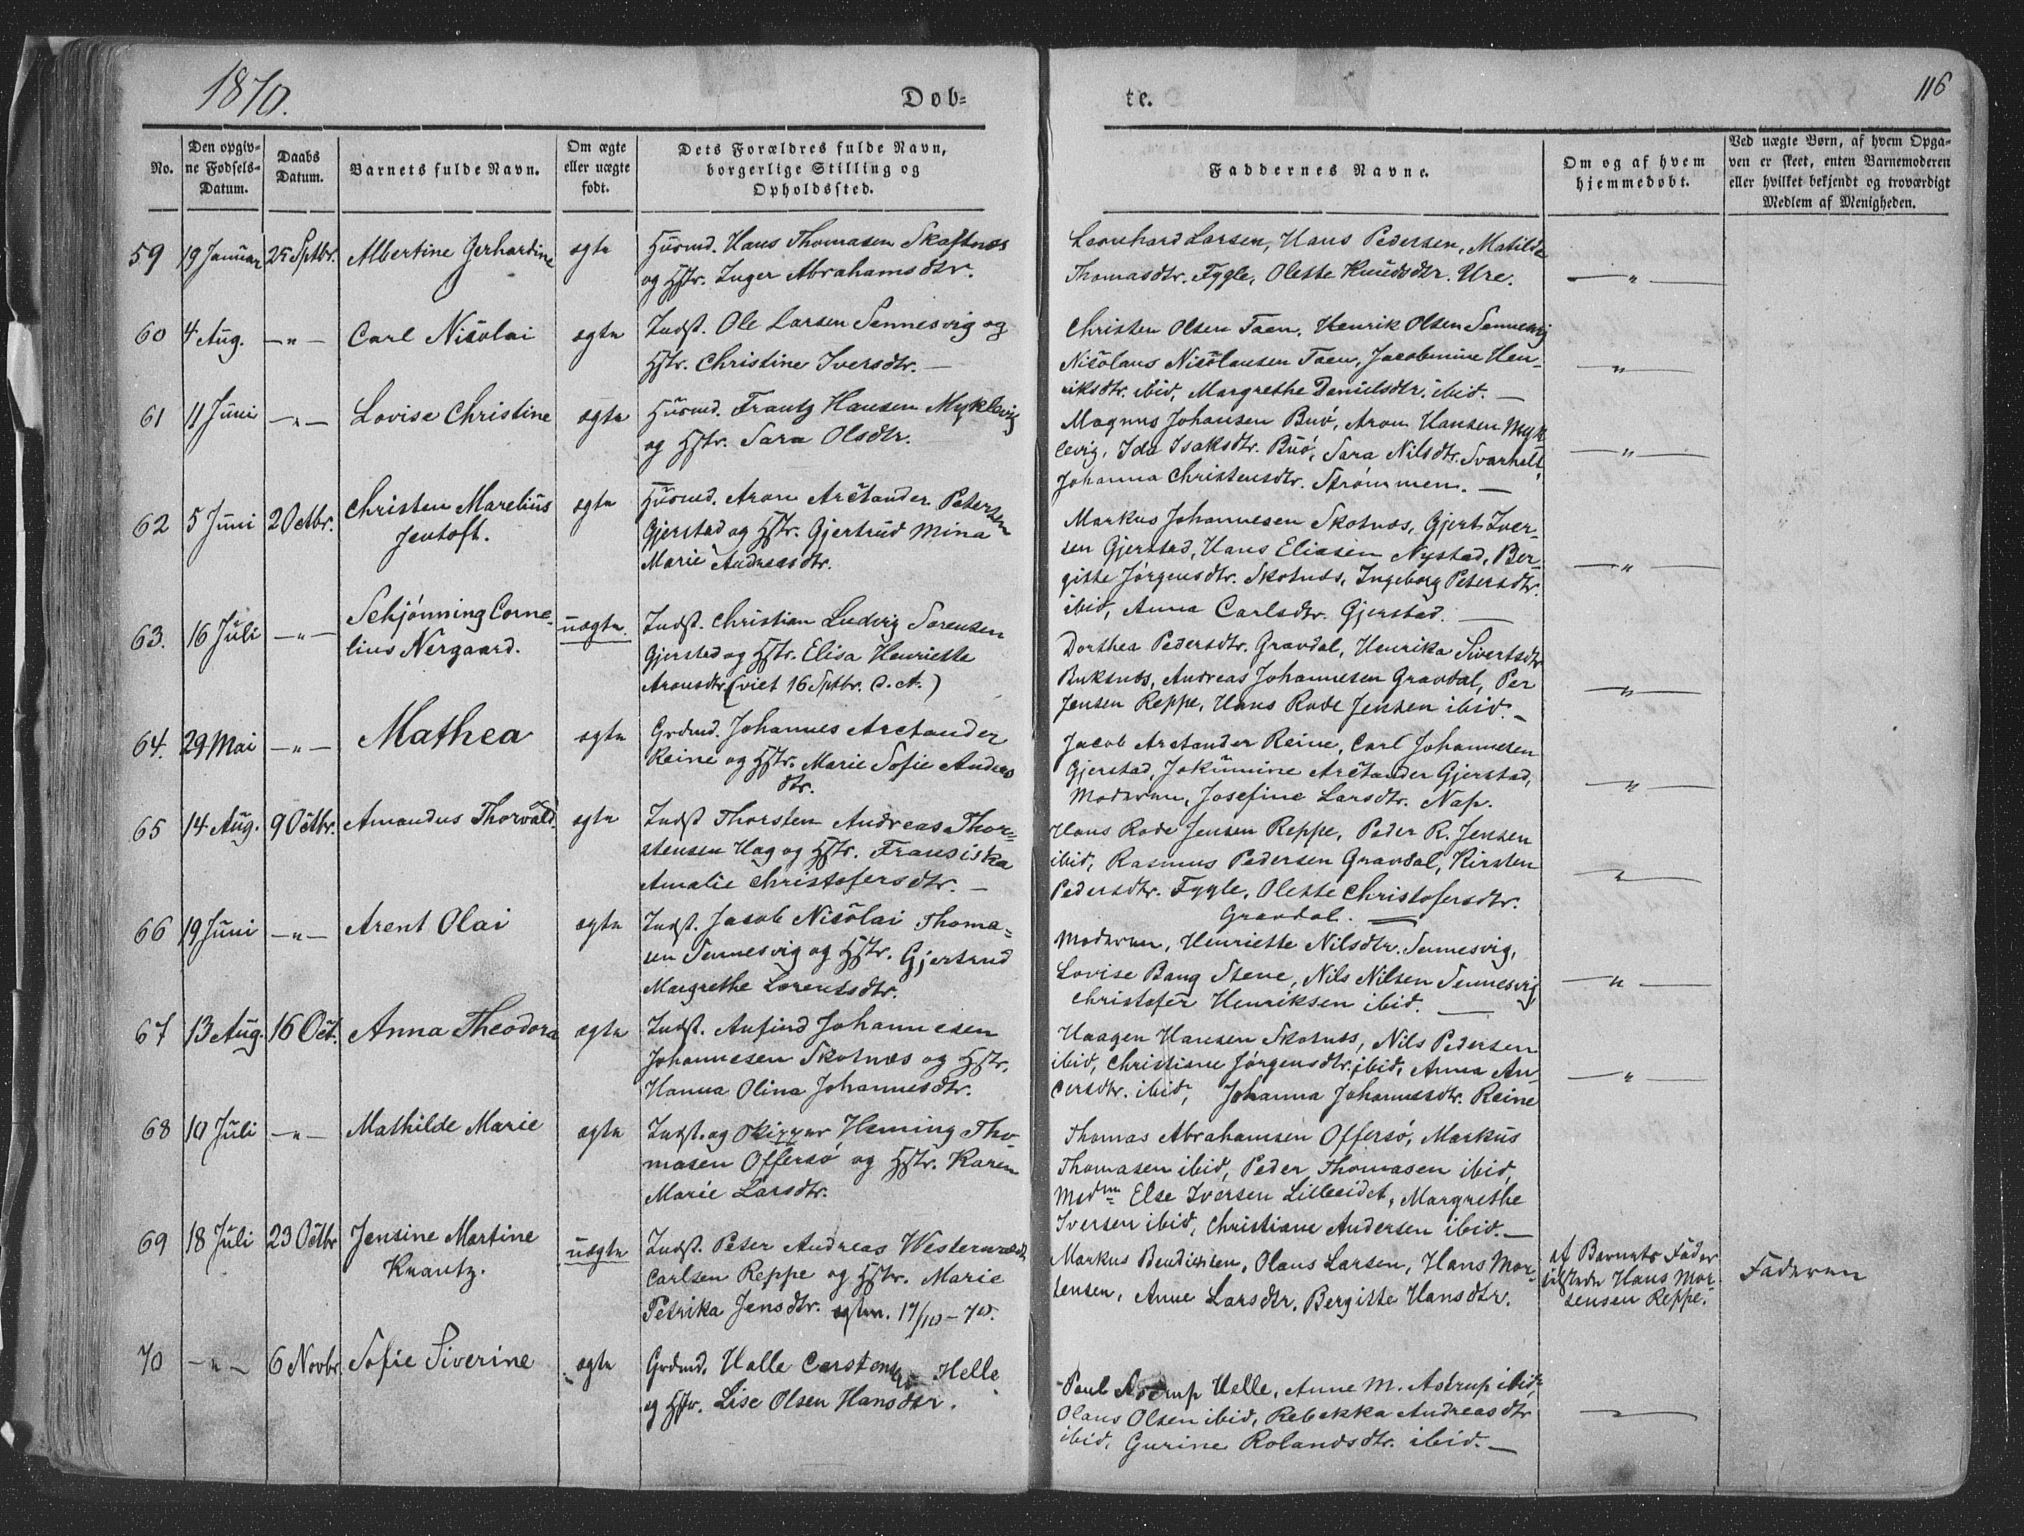 1870.
Dob-
te.
116
No.
Den opgiv-
ne Fødsels-
Datum.
Daabs
Datum.
Barnets fulde Navn.
Om ægte
eller uægte
født.
Dets Forældres fulde Navn,
borgerlige Stilling og
Opholdssted.
Faddernes Navne.
Om og af hvem
hjemmedøbt.
Ved uægte Børn, af hvem Opga-
ven er skeet, enten Barnemoderen
eller hvilket bekjendt og troværdigt
Medlem af Menigheden.
59 19 Januar 25 Sptbr. Albertine Gerhardine ægte Huusmd. Hans Thomasen Skaftnæs
og Hstr. Inger Abrahamsdtr.
Leonhard Larsen, Hans Pedersen, Matilde
Thomasdtr. Fygle, Olette Knudsdtr. Ure.
— " —
60 4 Aug. — " — Carl Nicolai ægte Indst. Ole Larsen Sennesvig og
Hstr. Christine Iversdtr. —
Christen Olsen Taen, Henrik Olsen Sennesvig
Nicolaus Nicolausen Taen, Jacobmine Hen-
riksdtr. ibid, Margrethe Danielsdtr. ibid. —
— " —
61 11 Juni — " — Lovise Christine ægte Huusmd. Frantz Hansen Myklevig
og Hstr. Sara Olsdtr.
Magnus Johansen Buø, Aron Hansen Myk-
levig, Ida Isaksdtr. Buø, Sara Nilsdtr. Svarholt,
Johanna Christensdtr. Strømmen. —
— " —
62 5 Juni 2 Octbr. Christen Marelius
Jentoft.
ægte Huusmd. Aron Arctander Petersen
Gjerstad og Hstr. Gjertrud Mina
Marie Andreasdtr.
Markus Johannesen Skotnæs, Gjert Iver-
sen Gjerstad, Hans Eliasen Nystad, Ber-
gitte Jørgensdtr. Skotnæs, Ingeborg Petersdtr.
ibid, Anna Carlsdtr. Gjerstad. —
— " —
63. 16 Juli — " — Schjønning Corne-
lius Nergaard.
uægte. Indst. Christian Ludvig Sørensen
Gjerstad og Hstr. Elisa Henriette
Aronsdtr (viet 16 Sptbr. d. A.)
Dorthea Pedersdtr. Gravdal, Henrika Sivertsdtr
Buksnæs, Andreas Johannesen Gravdal, Per
Jensen Reppe, Hans Rode Jensen ibid. —
— " —
64. 29 Mai — " — Mathea ægte Grdmd. Johannes Arctander
Reine og Hstr. Marie Sofie Anders
dtr.
Jacob Arctander Reine, Carl Johannesen
Gjerstad, Jokumine Arctander Gjerstad,
Moderen, Josefine Larsdtr. Nap.
— " —
65 14 Aug. 9 Octbr. Amandus Thorvald. ægte Indst Thorsten Andreas Thor-
stensen Hag og Hstr. Fransiska
Amalie Christofersdtr. —
Hans Rode Jensen Reppe, Peder R. Jensen
ibid, Rasmus Pedersen Gravdal, Kirsten
Pedersdtr. Fygle, Olette Christofersdtr.
Gravdal. —
— " —
66 19 Juni — " — Arent Olai ægte Indst. Jacob Nicolai Thoma-
sen Sennesvig og Hstr. Gjertrud
Margrethe Lorentsdtr.
Moderen, Henriette Nilsdtr. Sennesvig,
Lovise Bang Stene, Nils Nilsen Sennesvig,
Christofer Henriksen ibid. —
— " —
67 13 Aug. 16 Oct. Anna Theodora ægte Indst. Anfind Johannesen
Johannesen Skotnæs og Hstr.
Hanna Olina Johannesdtr.
Haagen Hansen Skotnæs, Nils Pedersen
ibid, Christiane Jørgensdtr. ibid, Anna An-
dersdtr. ibid, Johanna Johannesdtr. Reine
— " —
68 10 Juli — " — Mathilde Marie ægte Indst. og Skipper Heming Tho-
masen Offersø og Hstr. Karen
Marie Larsdtr.
Thomas Abrahamsen Offersø, Markus
Thomasen ibid, Peder Thomasen ibid,
Mdm Else Iversen Lilleeidet, Margrethe
Iversen ibid, Christiane Andersen ibid. —
69 18 Juli 23 Octbr Jensine Martine
Krantz.
uægte Indst. Peter Andreas Westerwaldt
Carlsen Reppe og Hstr. Marie
Petrika Jensdtr. 17/10 - 70.
Markus Bendixsen, Olaus Larsen, Hans Mor-
tensen, Anne Larsdtr, Bergitte Hansdtr.
af Barnets Fader
tilstede Hans Mor-
tensen Reppe.
Faderen
70 — " — 6 Novbr Sofie Siverine ægte Grdmd. Halle Carstensen Helle
og Hstr. Lise Olsen Hansdtr.
Poul Astrup Helle, Anne M. Astrup ibid,
Olaus Olsen ibid, Rebekka Andreasdtr
ibid, Gurine Rolandsdtr. ibid. —
— " —